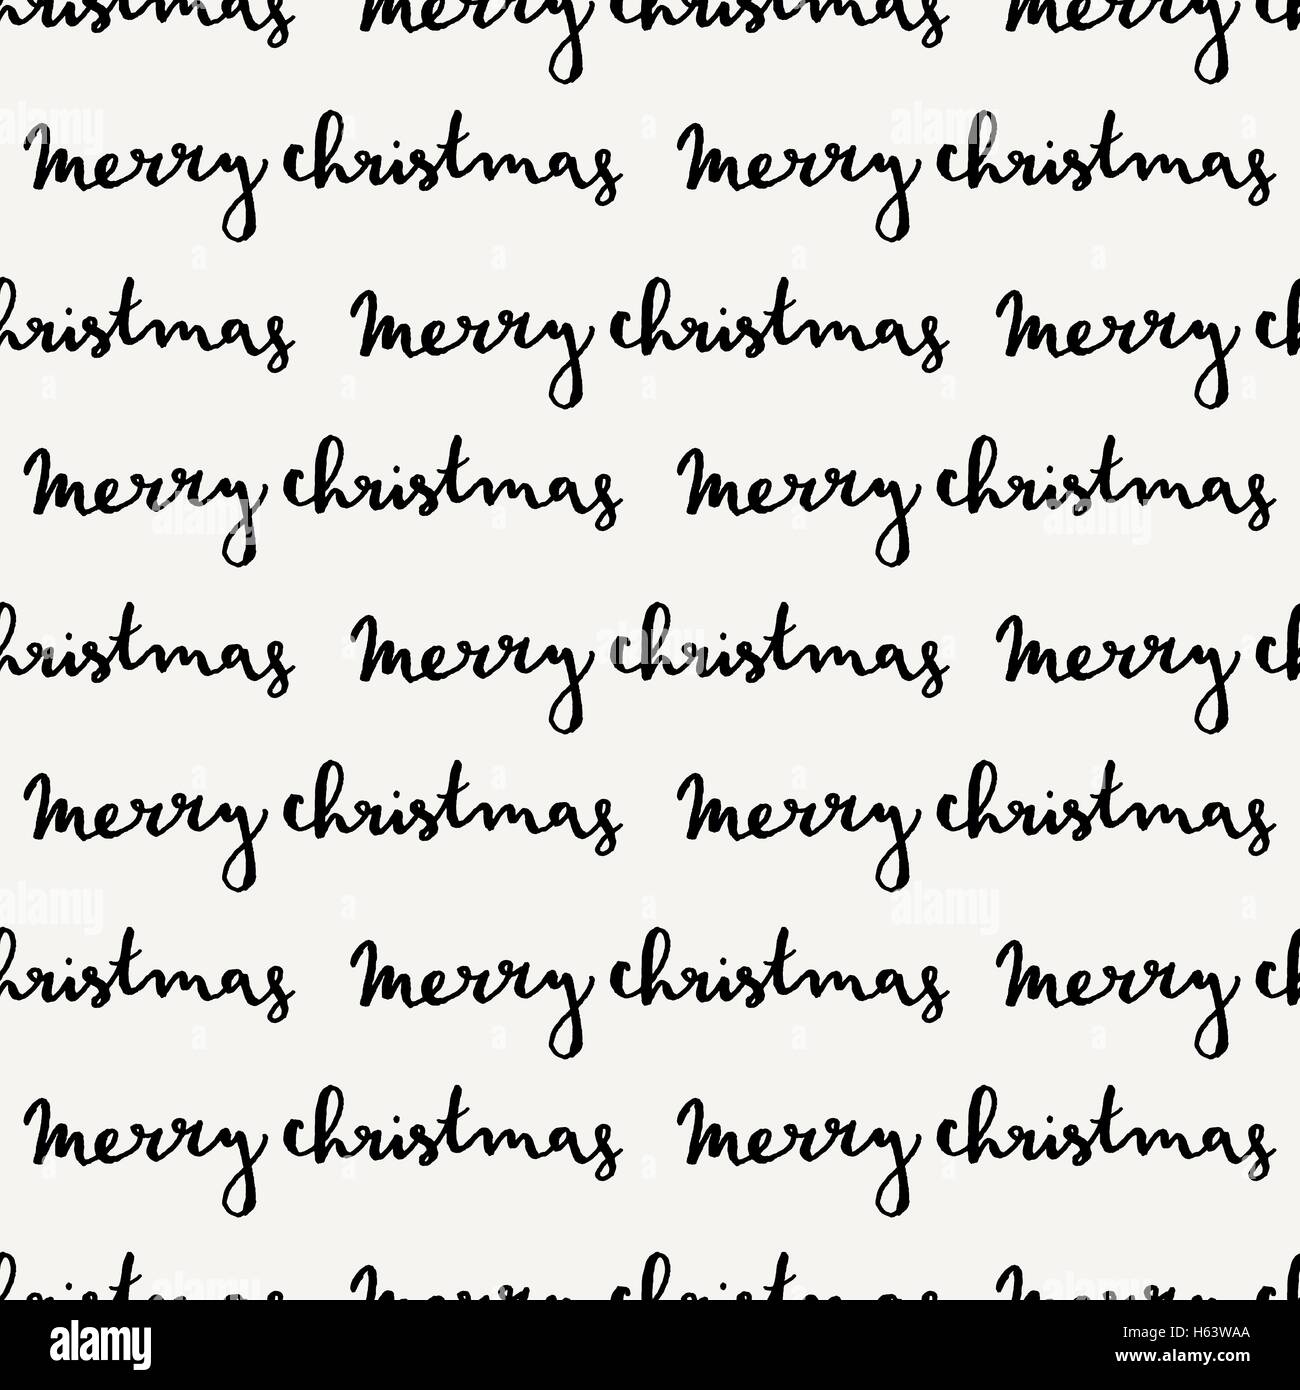 christmas merry christmas merry ch
merry christmas merry christmas
christmas merry christmas merry ch
merry christmas merry christmas
christmas merry christmas merry ch
merry christmas merry christmas
christmas merry christmas merry ch
merry christmas merry christmas
christmas merry christmas merry ch
alamy
Image ID: H63WAA
www.alamy.com